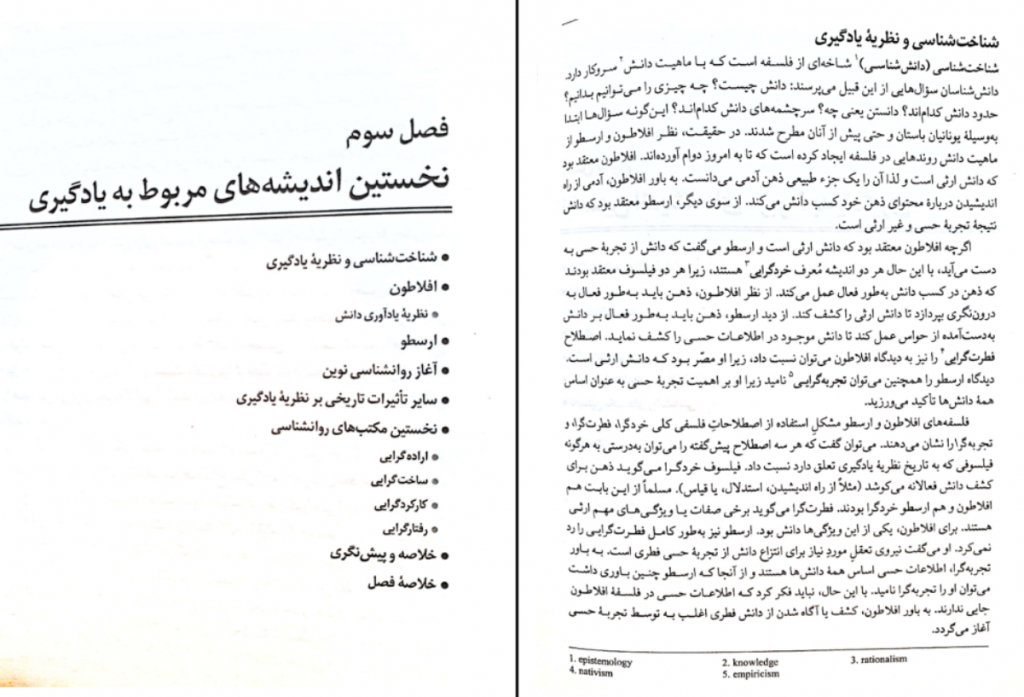 فصل سوم
نخستین اندیشه‌های مربوط به یادگیری
● شناخت‌شناسی و نظریهٔ یادگیری
● افلاطون
● نظریهٔ یادآوری دانش
● ارسطو
● آغاز روانشناسی نوین
● سایر تأثیرات تاریخی بر نظریهٔ یادگیری
● نخستین مکتب‌های روانشناسی
● اراده‌گرایی
● ساخت‌گرایی
● کارکردگرایی
● رفتارگرایی
● خلاصه و پیش‌نگری
● خلاصهٔ فصل
شناخت‌شناسی و نظریهٔ یادگیری
شناخت‌شناسی (دانش‌شناسی)۱ شاخه‌ای از فلسفه است که با ماهیت دانش۲ سروکار دارد.
دانش‌شناسان سؤال‌هایی از این قبیل می‌پرسند: دانش چیست؟ چه چیزی را می‌توانیم بدانیم؟
حدود دانش کدام‌اند؟ دانستن یعنی چه؟ سرچشمه‌های دانش کدام‌اند؟ این‌گونه سؤال‌ها ابتدا
به‌وسیلهٔ یونانیان باستان و حتی پیش از آنان مطرح شدند. در حقیقت، نظر افلاطون و ارسطو از
ماهیت دانش روندهایی در فلسفه ایجاد کرده است که تا به امروز دوام آورده‌اند. افلاطون معتقد بود
که دانش ارثی است و لذا آن را یک جزء طبیعی ذهن آدمی می‌دانست. به باور افلاطون، آدمی از راه
اندیشیدن دربارهٔ محتوای ذهن خود کسب دانش می‌کند. از سوی دیگر، ارسطو معتقد بود که دانش
نتیجهٔ تجربهٔ حسی و غیر ارثی است.
اگرچه افلاطون معتقد بود که دانش ارثی است و ارسطو می‌گفت که دانش از تجربهٔ حسی به
دست می‌آید، با این حال هر دو اندیشه مُعرف خردگرایی۳ هستند، زیرا هر دو فیلسوف معتقد بودند
که ذهن در کسب دانش به‌طور فعال عمل می‌کند. از نظر افلاطون، ذهن باید به‌طور فعال به
درون‌نگری بپردازد تا دانش ارثی را کشف کند. از دید ارسطو، ذهن باید به‌طور فعال بر دانش
به‌دست‌آمده از حواس عمل کند تا دانش موجود در اطلاعات حسی را کشف نماید. اصطلاح
فطرت‌گرایی۴ را نیز به دیدگاه افلاطون می‌توان نسبت داد، زیرا او مصّر بود که دانش ارثی است.
دیدگاه ارسطو را همچنین می‌توان تجربه‌گرایی۵ نامید زیرا او بر اهمیت تجربهٔ حسی به عنوان اساس
همهٔ دانش‌ها تأکید می‌ورزید.
فلسفه‌های افلاطون و ارسطو مشکلِ استفاده از اصطلاحاتِ فلسفی کلی خردگرا، فطرت‌گرا، و
تجربه‌گرا را نشان می‌دهند. می‌توان گفت که هر سه اصطلاح پیش‌گفته را می‌توان به‌درستی به هرگونه
فیلسوفی که به تاریخ نظریهٔ یادگیری تعلق دارد نسبت داد. فیلسوف خردگرا می‌گوید ذهن برای
کشف دانش فعالانه می‌کوشد (مثلاً از راه اندیشیدن، استدلال، یا قیاس). مسلماً از این بابت هم
افلاطون و هم ارسطو خردگرا بودند. فطرت‌گرا می‌گوید برخی صفات یا ویژگی‌های مهم ارثی
هستند. برای افلاطون، یکی از این ویژگی‌ها دانش بود. ارسطو نیز به‌طور کامل فطرت‌گرایی را رد
نمی‌کرد. او می‌گفت نیروی تعقل موردِ نیاز برای انتزاع دانش از تجربهٔ حسی فطری است. به باور
تجربه‌گرا، اطلاعات حسی اساس همهٔ دانش‌ها هستند و از آنجا که ارسطو چنین باوری داشت
می‌توان او را تجربه‌گرا نامید. با این حال، نباید فکر کرد که اطلاعات حسی در فلسفهٔ افلاطون
جایی ندارند. به باور افلاطون، کشف یا آگاه شدن از دانش فطری اغلب به توسط تجربهٔ حسی
آغاز می‌گردد.
1. epistemology 2. knowledge 3. rationalism
4. nativism 5. empiricism